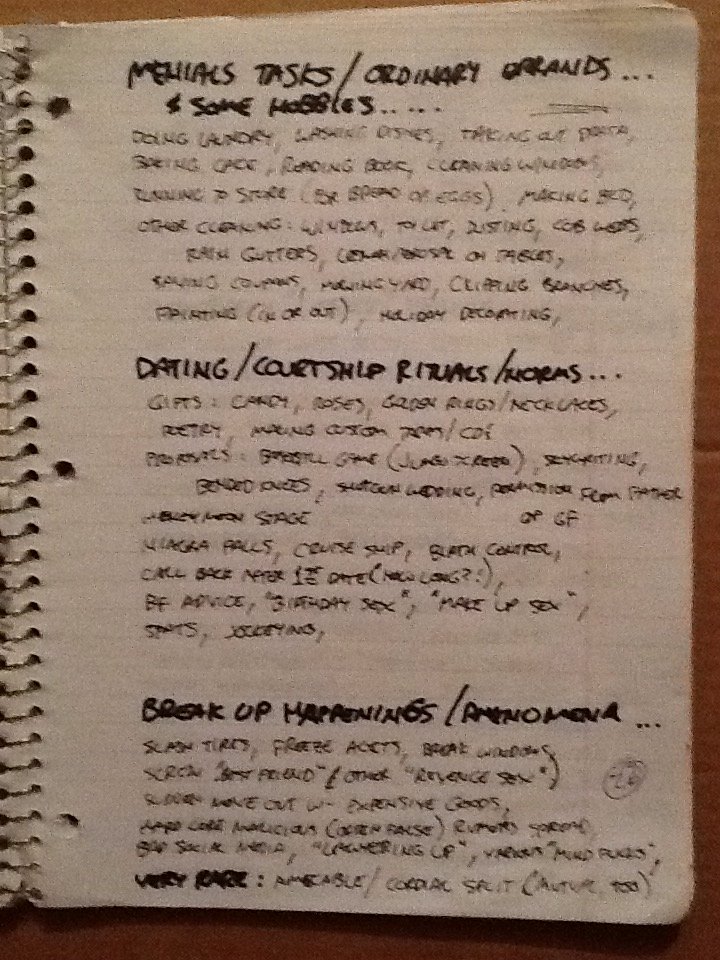 MENIALS TASKS/ORDINARY ERRANDS...
& SOME HOBBIES.....
DOING LAUNDRY, WASHING DISHES, TAKING OUT
BAKING CAKE, READING BOOK, CLEANING WINDOWS,
RUNNING TO STORE (FOR BREAD OR EGGS), MAKING BED,
OTHER CLEANING: WINDOWS, TOILET, DUSTING, COB WEBS,
RAIN GUTTERS, ON TABLES,
SAVING COUPONS, MOWING YARD, CLIPPING BRANCHES,
PAINTING (IN OR OUT), HOLIDAY DECORATING,
DATING/COURTSHIP RITUALS/NORMS...
GIFTS: CANDY, ROSES, GOLDEN RINGS/NECKLACES,
POETRY, MAKING CUSTOM TAPES/CDS
PROPOSALS: BASEBALL GAME (JUMBO SCREEN), SKYWRITING,
BENDED KNEES, SHOTGUN WEDDING, PERMISSION FROM FATHER
HONEYMOON STAGE OF GF
NIAGRA FALLS, CRUISE SHIP, BIRTH CONTROL,
CALL BACK AFTER 1ST DATE (HOW LONG?!),
BF ADVICE, "BIRTHDAY SEX", "MAKE UP SEX",
SPATS, JOCKEYING,
BREAK UP HAPPENINGS/PHENOMENA...
SLASH TIRES, FREEZE ACCTS, BREAK WINDOWS,
SCREW "BEST FRIEND" (OTHER "REVENGE SEX")
SUDDEN MOVE OUT W- EXPENSIVE GOODS,
HARD CORE MALICIOUS (OFTEN FALSE) RUMORS SPREAD,
BAD SOCIAL MEDIA, "LAWYERING UP", VARIOUS "MIND FUCKS",
VERY RARE: AMECABLE/CORDIAL SPLIT (MUTUAL TOO)